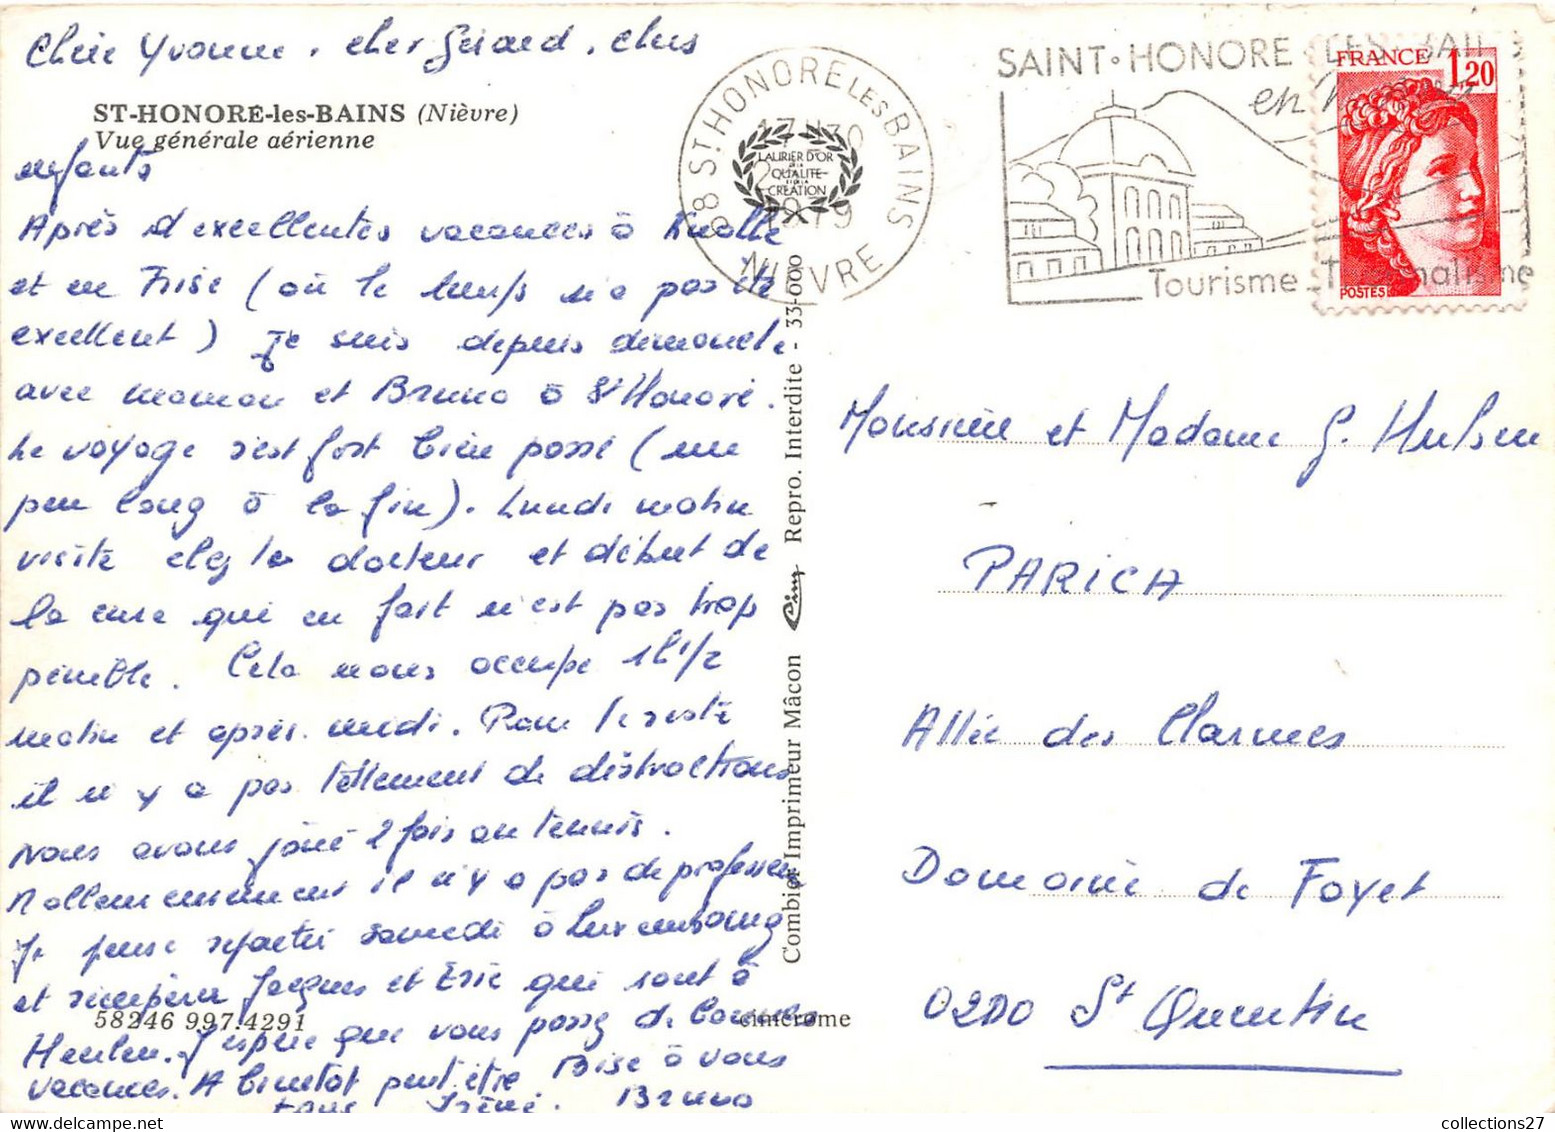 Chère Yvonne, cher Gérard, chers
ST-HONORE-les-BAINS (Nièvre)
Vue générale aérienne
enfants
Après d'excellentes vacances à Knokke
et en Frise (où le temps n'a pas été
excellent) Je suis depuis dimanche
avec maman et Bruno à St Honoré.
Le voyage s'est fort bien passé (un
peu long à la fin). Lundi matin
visite chez le docteur et début de
la cure qui en fait n'est pas trop
pénible. Cela nous occupe 1h1/2
matin et après-midi. Pour le reste
il n'y a pas tellement de distractions
Nous avons joué 2 fois au tennis.
Malheureusement il n'y a pas de professeur
Je pense repartir samedi à Luxembourg
et récupérer Jacques et Eric qui sont à
58246 997.4291
J'espère que vous passez de bonnes
vacances. A bientôt peut être Bise à vous
tous Irène. Bruno
cimcrome
Combier Imprimeur Mâcon Cim Repro. Interdite - 33-000
58 ST HONORE LES BAINS
1979
NIEVRE
LAURIER D'OR
DE LA
QUALITE
CREATION
SAINT-HONORE-LES-BAINS
en
Tourisme
FRANCE 1,20
POSTES
Monsieur et Madame G. Hulsen
PARICA
Allée des Charmes
Domaine de Foyet
02100 St Quentin
collections27